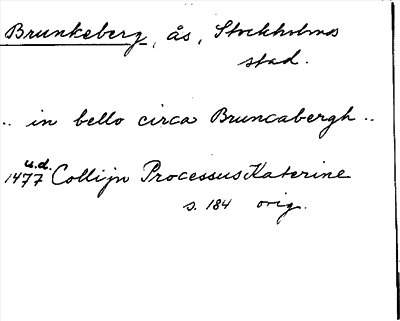 Brunkeberg, ås, Stockholms
stad.
.. in bello circa Bruncabergh ..
u.d.
1477 Collijn Processus Katerine
s. 184 orig.